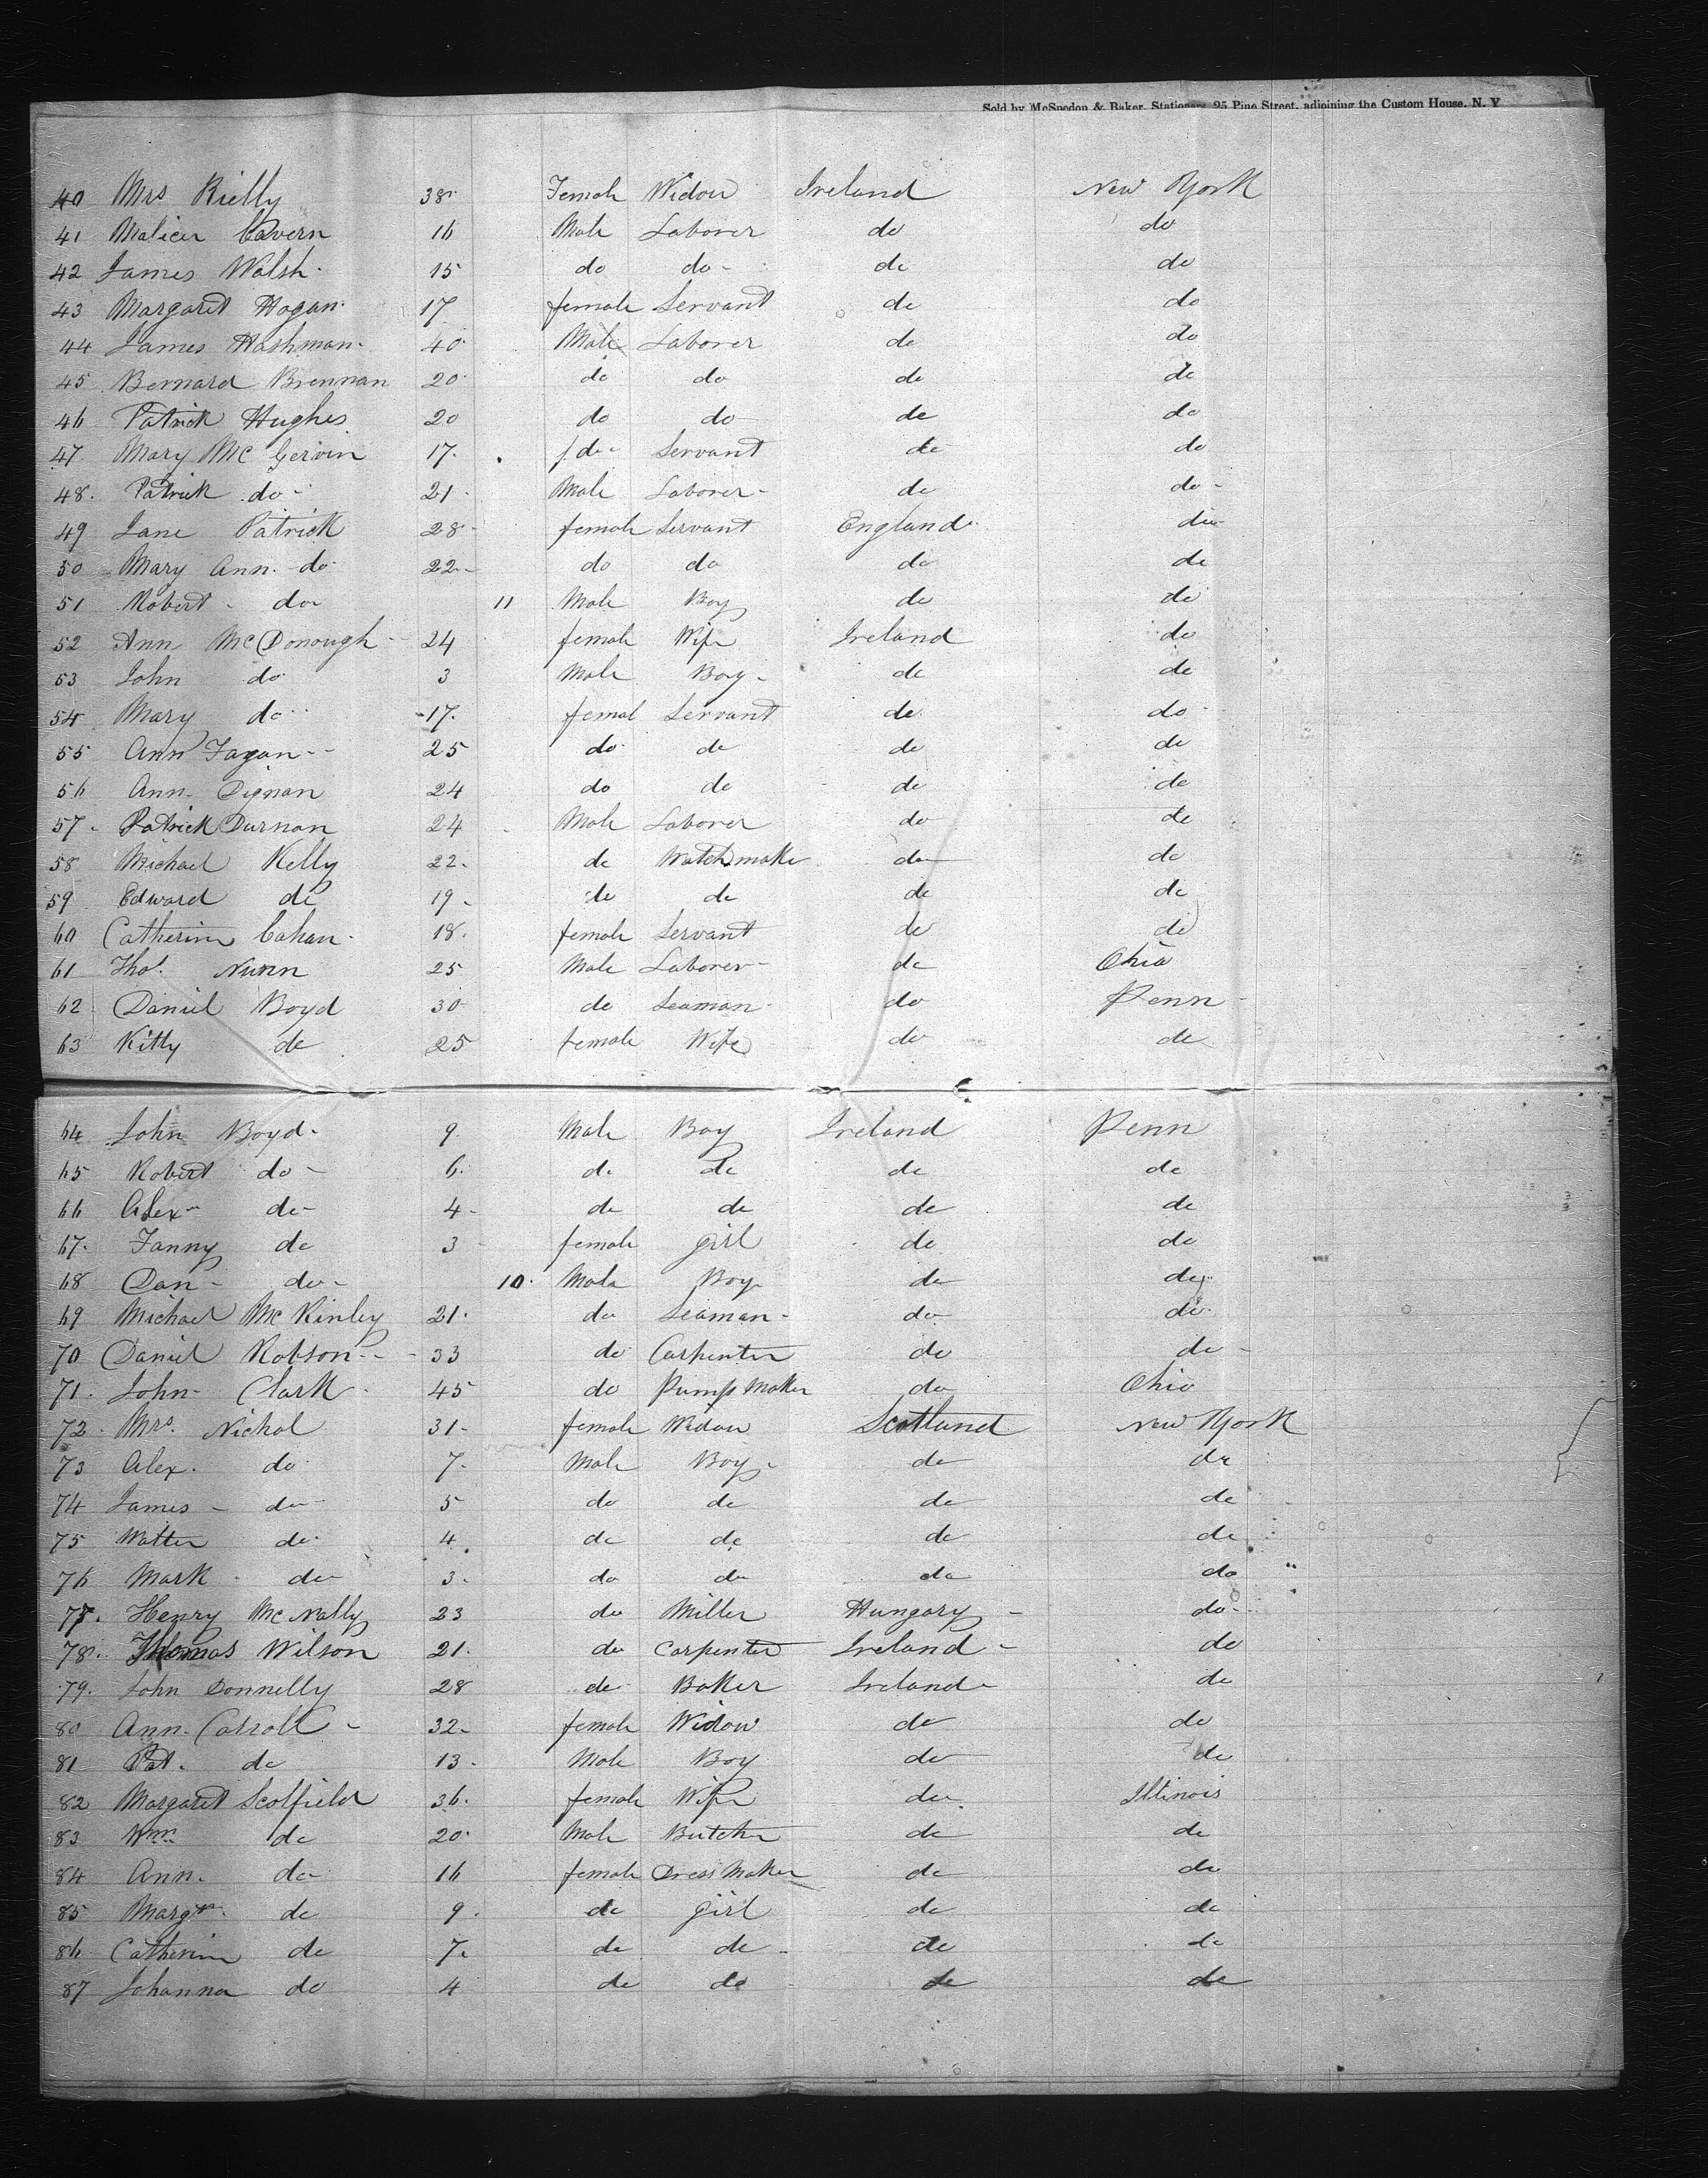 Sold by McSpedon & Baker, Stationers, 25 Pine Street, adjoining the Custom House, N. Y.
40 Mrs Rielly 38 Female Widow Ireland New York
41 Cavern 16 Male Laborer do do
42 James Walsh 15 do do do do
43 Margaret Hogan 17 female Servant do do
44 James Hashman 40 Male Laborer do do
45 Bernard Brennan 20 do do do do
46 Patrick Hughes 20 do do do do
47 Mary McGervin 17 f do Servant do do
48 Patrick do 21 Male Laborer do do
49 Jane Patrick 28 female Servant England do
50 Mary Ann do 22 do do do do
51 Robert do 11 Male Boy do do
52 Ann McDonough 24 female Wife Ireland do
53 John do 3 Male Boy do do
54 Mary do 17 femal Servant do do
55 Ann Fagan 25 do do do do
56 Ann Dignan 24 do do do do
57 Patrick Durnan 24 Male Laborer do do
58 Michael Kelly 22 do Watchmake do do
59 Edward do 19 do do do do
60 Catherine Cahan 18 female Servant do do
61 Thos. Nunn 25 Male Laborer do Ohio
62 Daniel Boyd 30 do Seaman do Penn
63 Kitty do 25 female Wife do do
64 John Boyd 9 Male Boy Ireland Penn
65 Robert do 6 do do do do
66 Alex do 4 do do do do
67 Fanny do 3 female girl do do
68 Dan do 10 Male Boy do do
69 Michael McKinley 21 do Seaman do do
70 Daniel Robson 33 do Carpenter do do
71 John Clark 45 do Pump Maker do Ohio
72 Mrs. Nichol 31 female Widow Scotland New York
73 Alex. do 7 Male Boy do do
74 James do 5 do do do do
75 Walter do 4 do do do do
76 Mark do 3 do do do do
77 Henry McNally 23 do Miller Hungary do
78 Thomas Wilson 21 do Carpenter Ireland do
79 John Donnelly 28 do Baker Ireland do
80 Ann Carroll 32 female Widow do do
81 Pat. do 13 Male Boy do do
82 Margaret Scolfield 36 female Wife do Illinois
83 Wm do 20 Male Butcher do do
84 Ann do 16 female Dress Maker do do
85 Margt do 9 do girl do do
86 Catherine do 7 do do do do
87 Johanna do 4 do do do do